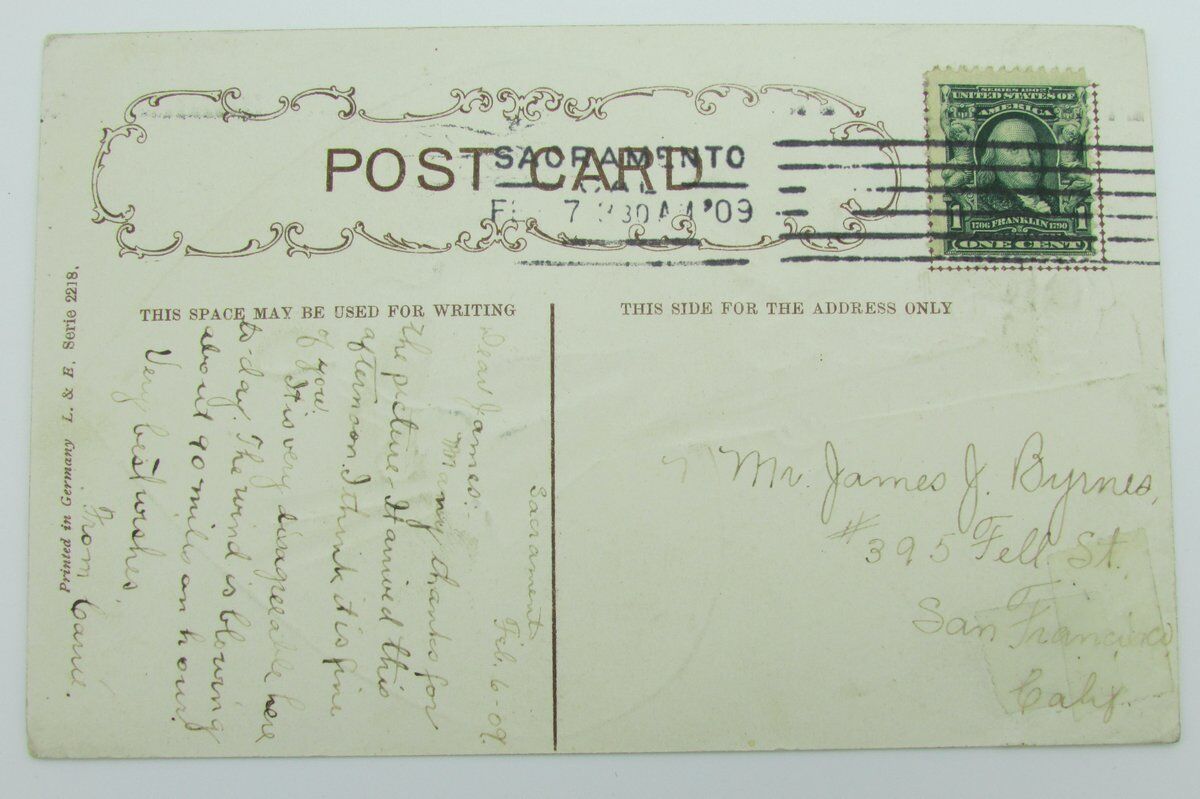 POST CARD
SACRAMENTO
7 30 AM '09
SERIES 1902
UNITED STATES OF
AMERICA
1 1
1706 FRANKLIN 1790
ONE CENT
THIS SPACE MAY BE USED FOR WRITING
THIS SIDE FOR THE ADDRESS ONLY
Sacramento
Feb. 6-09.
Dear James:
Many thanks for
the picture - It arrived this
afternoon. I think it is fine
of you.
It is very disagreeable here
to-day. The wind is blowing
about 90 miles an hour.
Very best wishes,
From
Mr. James J. Byrnes,
#395 Fell St.
San Francisco
Calif.
Printed in Germany L. & E. Serie 2218.